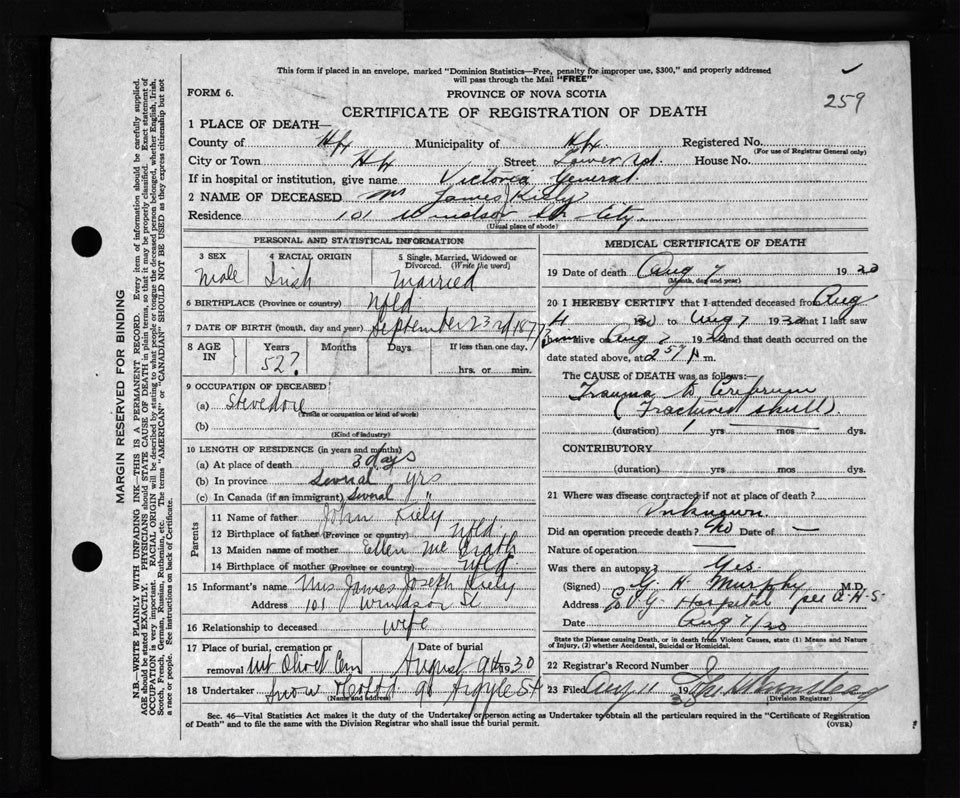 This form if placed in an envelope, marked "Dominion Statistics—Free, penalty for improper use, $300," and properly addressed
will pass through the Mail "FREE"
259
FORM 6.
PROVINCE OF NOVA SCOTIA
CERTIFICATE OF REGISTRATION OF DEATH
1 PLACE OF DEATH—
County of Hfx Municipality of Hfx Registered No.
(For use of Registrar General only)
City or Town Hfx Street Lower Rd. House No.
If in hospital or institution, give name Victoria General
2 NAME OF DECEASED Mr James Kiely
Residence 101 Windsor St. City
(Usual place of abode)
PERSONAL AND STATISTICAL INFORMATION
3 SEX
Male
4 RACIAL ORIGIN
Irish
5 Single, Married, Widowed or
Divorced. (Write the word)
Married
6 BIRTHPLACE (Province or country) Nfld
7 DATE OF BIRTH (month, day and year) September 23rd 1877
8 AGE
IN
Years
52?
Months
Days
If less than one day.
hrs. or min.
9 OCCUPATION OF DECEASED
(a) Stevedore
(Trade or occupation or kind of work)
(b)
(Kind of industry)
10 LENGTH OF RESIDENCE (in years and months)
(a) At place of death 3 days
(b) In province Several yrs
(c) In Canada (if an immigrant) Several "
Parents
11 Name of father John Kiely
12 Birthplace of father (Province or country) Nfld.
13 Maiden name of mother Ellen Mc Grath
14 Birthplace of mother (Province or country) Nfld
15 Informant's name Mrs James Joseph Kiely
Address 101 Windsor St
16 Relationship to deceased wife
17 Place of burial, cremation or
removal Mt Olivet Cem
Date of burial
August 9th 1930
18 Undertaker Snow 90 Argyle St
(Name and address)
MEDICAL CERTIFICATE OF DEATH
19 Date of death Aug 7 1930
(Month, day and year)
20 I HEREBY CERTIFY that I attended deceased from Aug
4 30 to Aug 7 1930 that I last saw
him alive on Aug 7 1930 and that death occurred on the
date stated above, at 2 57 m.
The CAUSE OF DEATH was as follows:—
Trauma to Cerebrum
(Fractured skull)
(duration) yrs mos dys.
CONTRIBUTORY
(duration) yrs mos dys.
21 Where was disease contracted if not at place of death?
Unknown
Did an operation precede death? No Date of —
Nature of operation —
Was there an autopsy? Yes
(Signed) G. H. Murphy M.D.
Address Hospital per A.H.S.
Date Aug 7/30
State the Disease causing Death, or in death from Violent Causes, state (1) Means and
Nature of Injury, (2) whether Accidental, Suicidal or Homicidal.
22 Registrar's Record Number
23 Filed Aug 11 1930
(Division Registrar)
Sec. 46—Vital Statistics Act makes it the duty of the Undertaker or person acting as Undertaker to obtain all the particulars required in the "Certificate of Registration
of Death" and to file the same with the Division Registrar who shall issue the burial permit.
(OVER)
MARGIN RESERVED FOR BINDING
N.B.—WRITE PLAINLY WITH UNFADING INK—THIS IS A PERMANENT RECORD. Every item of information should be carefully supplied.
AGE should be stated EXACTLY. PHYSICIANS should STATE CAUSE OF DEATH in plain terms, so that it may be properly classified. Exact statement of
OCCUPATION is very important. RACIAL ORIGIN will be described by stating to what people or tongue the deceased person belonged, whether English, Irish,
Scotch, French, German, Russian, Ruthenian, etc. The terms "AMERICAN" or "CANADIAN" SHOULD NOT BE USED as they express citizenship but not
a race or people. See instructions on back of Certificate.